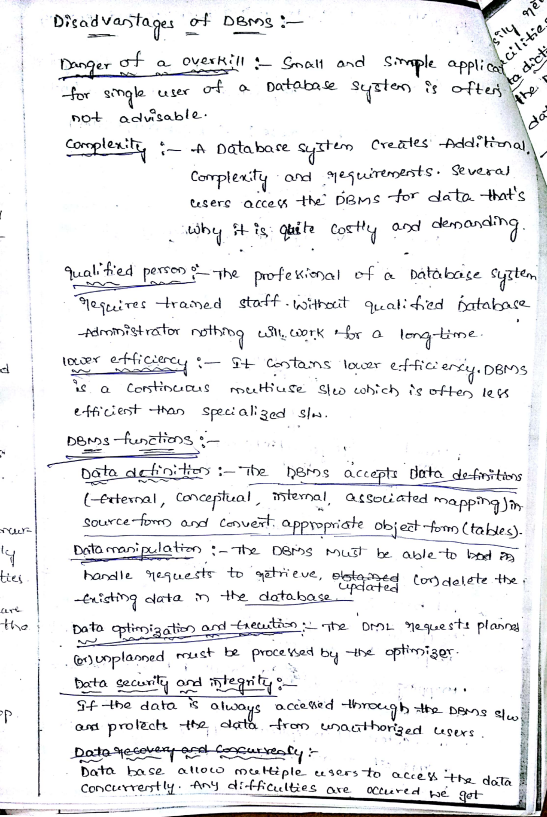 Disadvantages of DBMS :-
Danger of a overkill :- Small and simple applicat
for single user of a Database system is often
not advisable.
Complexity :- A Database system creates Additional
complexity and requirements. Several
users access the DBMS for data that's
why it is quite costly and demanding.
qualified person :- The professional of a Database system
requires trained staff. without qualified Database
Administrator nothing will work for a long-time.
lower efficiency :- It contains lower efficiency. DBMS
is a continuous multiuse s/w which is often less
efficient than specialized s/w.
DBMS functions :-
Data definition :- The DBMS accepts Data definitions
(external, conceptual, internal, associated mapping) in
source form and convert appropriate object form (tables).
Data manipulation :- The DBMS must be able to
handle requests to retrieve, obtained updated (or) delete the
existing data in the database.
Data optimization and execution :- The DML requests planned
(or) unplanned must be processed by the optimizer.
Data security and integrity :-
If the data is always accessed through the DBMS s/w
and protects the data from unauthorized users.
Data recovery and concurrency :-
Data base allow multiple users to access the data
concurrently. Any difficulties are occured we got